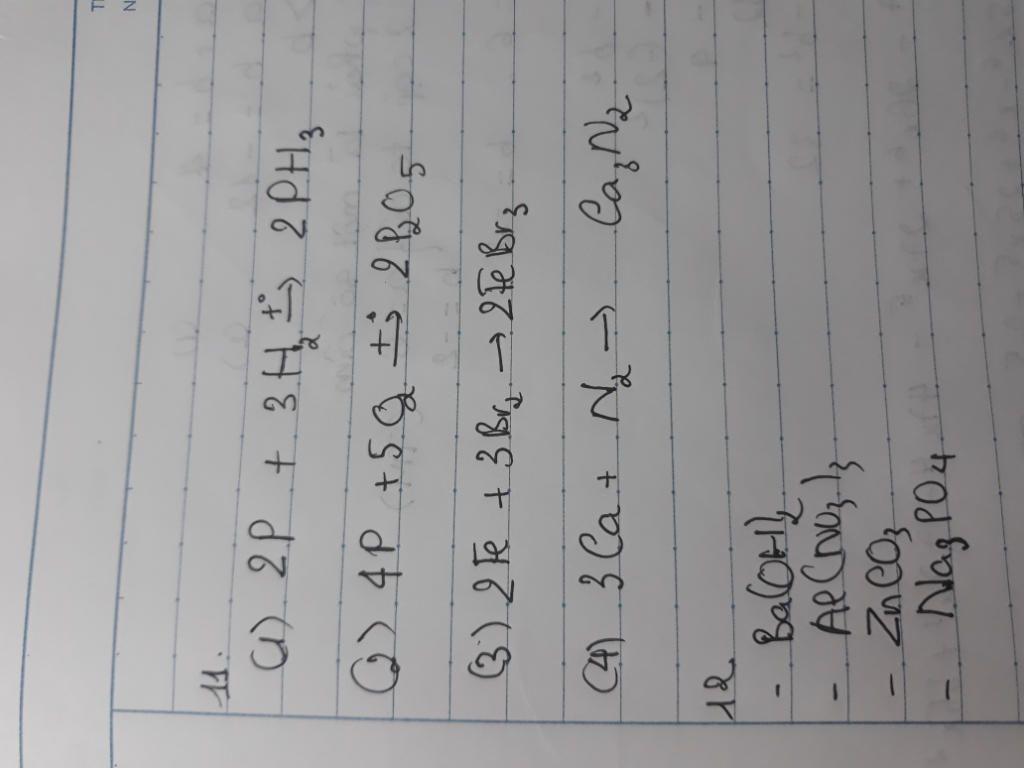 11.
(1) 2P + 3H₂ →(t°) 2PH₃
(2) 4P + 5O₂ →(t°) 2P₂O₅
(3) 2Fe + 3Br₂ → 2FeBr₃
(4) 3Ca + N₂ → Ca₃N₂
12
- Ba(OH)₂
- Al(NO₃)₃
- ZnCO₃
- Na₃PO₄